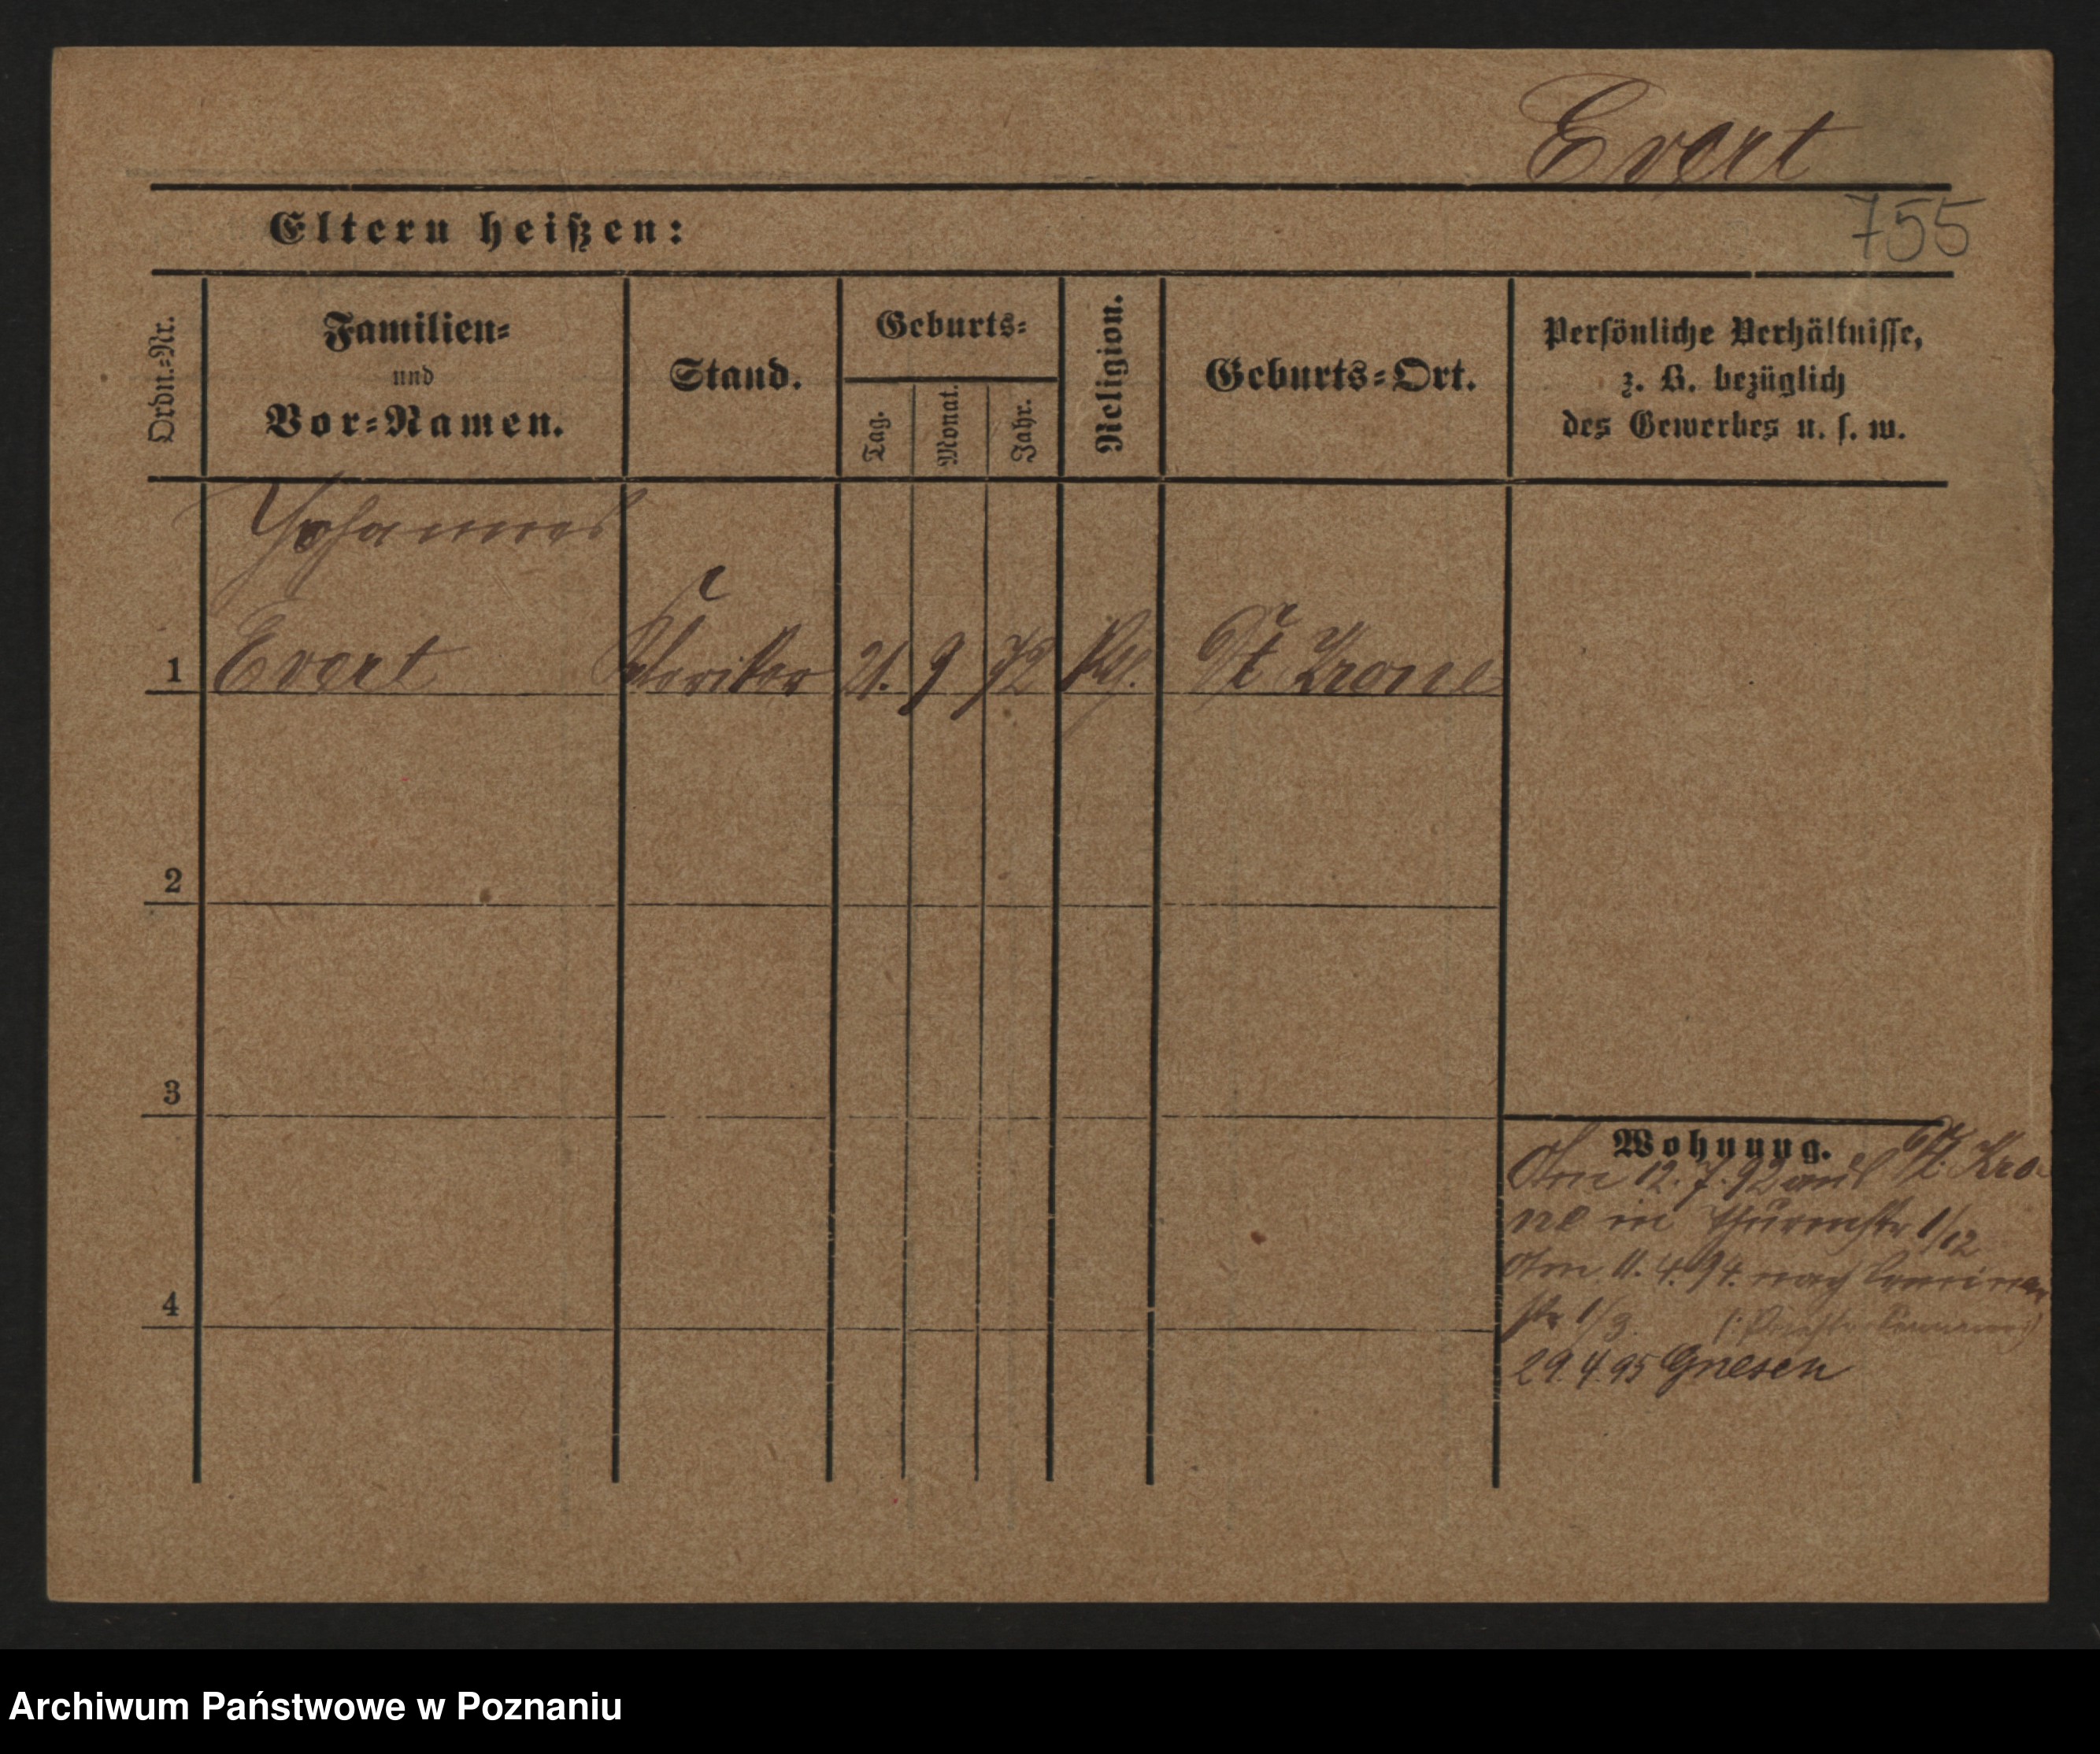 Evert
755
Eltern heißen:
Ordn.=Nr.
Familien=
und
Vor=Namen.
Stand.
Geburts=
Tag.
Monat.
Jahr.
Religion.
Geburts=Ort.
Persönliche Verhältnisse,
z. B. bezüglich
des Gewerbes u. s. w.
Johannes
1 Evert Kleriker 21. 9 72 Kth. Dt Krone
2
3
4
Wohnung.
Am 12. 7. 92 aus Dt. Kro=
ne in 1/12
Am 11. 4. 94. nach
str 1/3.
29.4.95 Gnesen
Archiwum Państwowe w Poznaniu